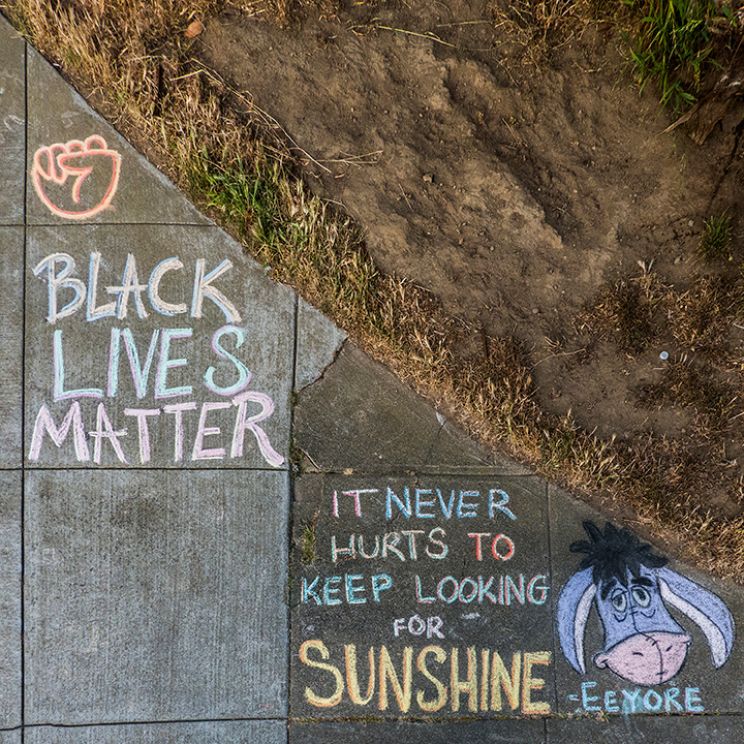 BLACK
LIVES
MATTER
IT NEVER
HURTS TO
KEEP LOOKING
FOR
SUNSHINE
-EEYORE